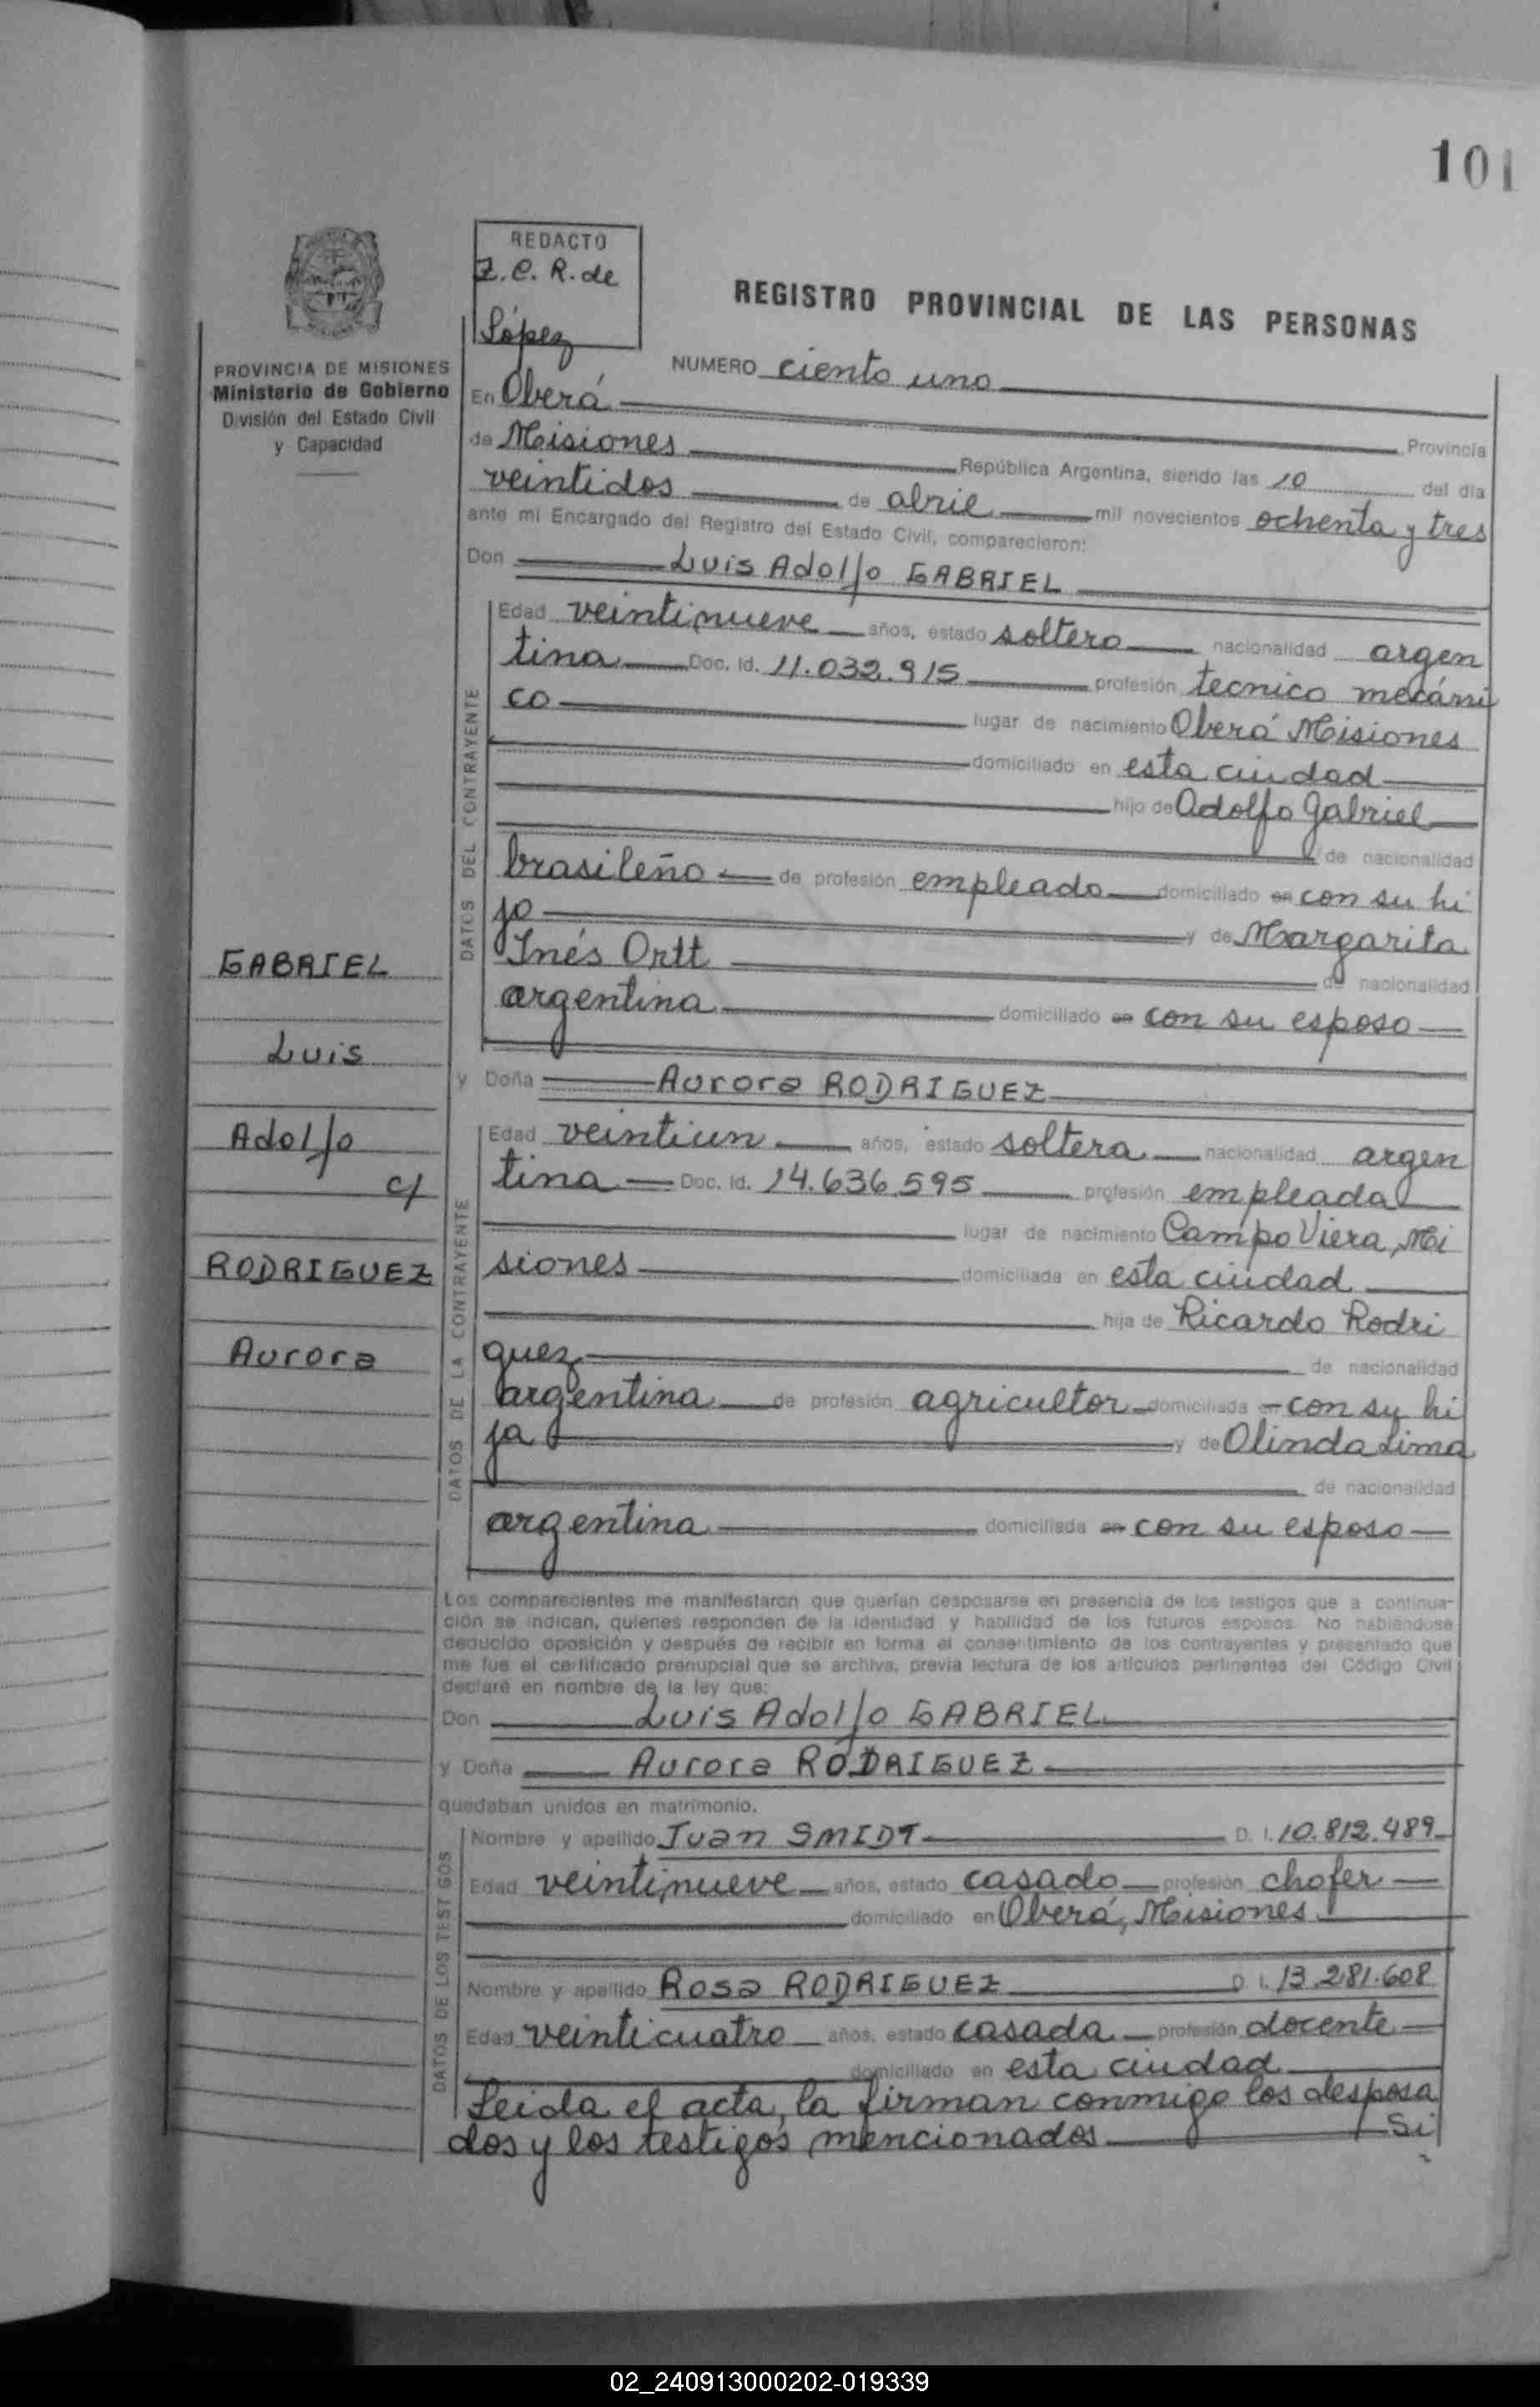 101
REDACTO
Z. C. R. de
López
REGISTRO PROVINCIAL DE LAS PERSONAS
PROVINCIA DE MISIONES
Ministerio de Gobierno
División del Estado Civil
y Capacidad
NUMERO ciento uno
En Oberá
Provincia
de Misiones República Argentina, siendo las 10 del día
veintidos de abril mil novecientos ochenta y tres
ante mi Encargado del Registro del Estado Civil, comparecieron:
Don Luis Adolfo GABRIEL
DATOS DEL CONTRAYENTE
Edad veintinueve años, estado soltero nacionalidad argen
tina Doc. Id. 11.032.915 profesión tecnico mecáni
co lugar de nacimiento Oberá Misiones
domiciliado en esta ciudad
hijo de Adolfo Gabriel
de nacionalidad
brasileño de profesión empleado domiciliado en con su hi
jo y de Margarita
Inés Ortt de nacionalidad
argentina domiciliado en con su esposo
y Doña Aurora RODRIGUEZ
DATOS DE LA CONTRAYENTE
Edad veintiun años, estado soltera nacionalidad argen
tina Doc. Id. 14.636.595 profesión empleada
lugar de nacimiento Campo Viera, Mi
siones domiciliada en esta ciudad
hija de Ricardo Rodri
guez de nacionalidad
argentina de profesión agricultor domiciliada en con su hi
ja y de Olinda Lima
de nacionalidad
argentina domiciliada en con su esposo
GABRIEL
Luis
Adolfo
c/
RODRIGUEZ
Aurora
Los comparecientes me manifestaron que querían desposarse en presencia de los testigos que a continua-
ción se indican, quienes responden de la identidad y habilidad de los futuros esposos. No habiéndose
deducido oposición y después de recibir en forma el consentimiento de los contrayentes y presentado que
me fue el certificado prenupcial que se archiva, previa lectura de los artículos pertinentes del Código Civil
declaré en nombre de la ley que:
Don Luis Adolfo GABRIEL
y Doña Aurora RODRIGUEZ
quedaban unidos en matrimonio.
DATOS DE LOS TESTIGOS
Nombre y apellido Juan SMIDT D. I. 10.812.489
Edad veintinueve años, estado casado profesión chofer
domiciliado en Oberá, Misiones
Nombre y apellido Rosa RODRIGUEZ D. I. 13.281.608
Edad veinticuatro años, estado casada profesión docente
domiciliado en esta ciudad
Leida el acta, la firman conmigo los desposa
dos y los testigos mencionados Si
02_240913000202-019339